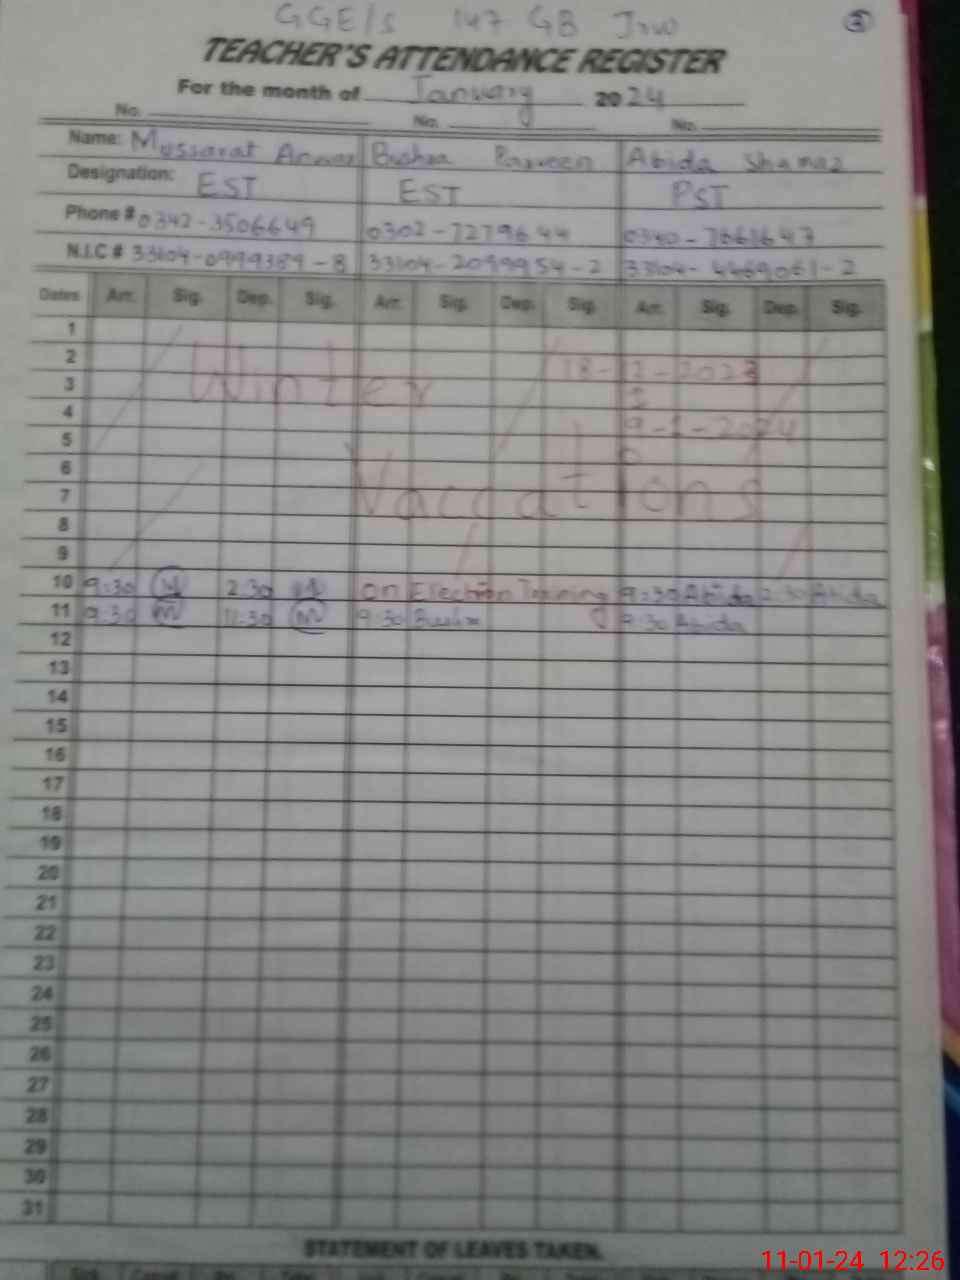 GGE/S 147 GB Jrw 3
TEACHER'S ATTENDANCE REGISTER
For the month of January 2024
No. No. No.
Name: Mussarat Anwar Bushra Parveen Abida Shanaz
Designation: EST EST PST
Phone # 0342-3506649 0302-7279644 0340-7661647
N.I.C # 33104-0999389-8 33104-2099954-2 33104-4469061-2
Dates Arr. Sig. Dep. Sig. Arr. Sig. Dep. Sig. Arr. Sig. Dep. Sig.
1
2 18-12-2023
3 Winter
4 9-1-2024
5
6
7 Vaccations
8
9
10 9:30 M 2:30 M On Election Training 9:30 Abida 2:30 Abida
11 9:30 M 11:30 M 9:30 Bushra 9:30 Abida
12
13
14
15
16
17
18
19
20
21
22
23
24
25
26
27
28
29
30
31
STATEMENT OF LEAVES TAKEN.
11-01-24 12:26